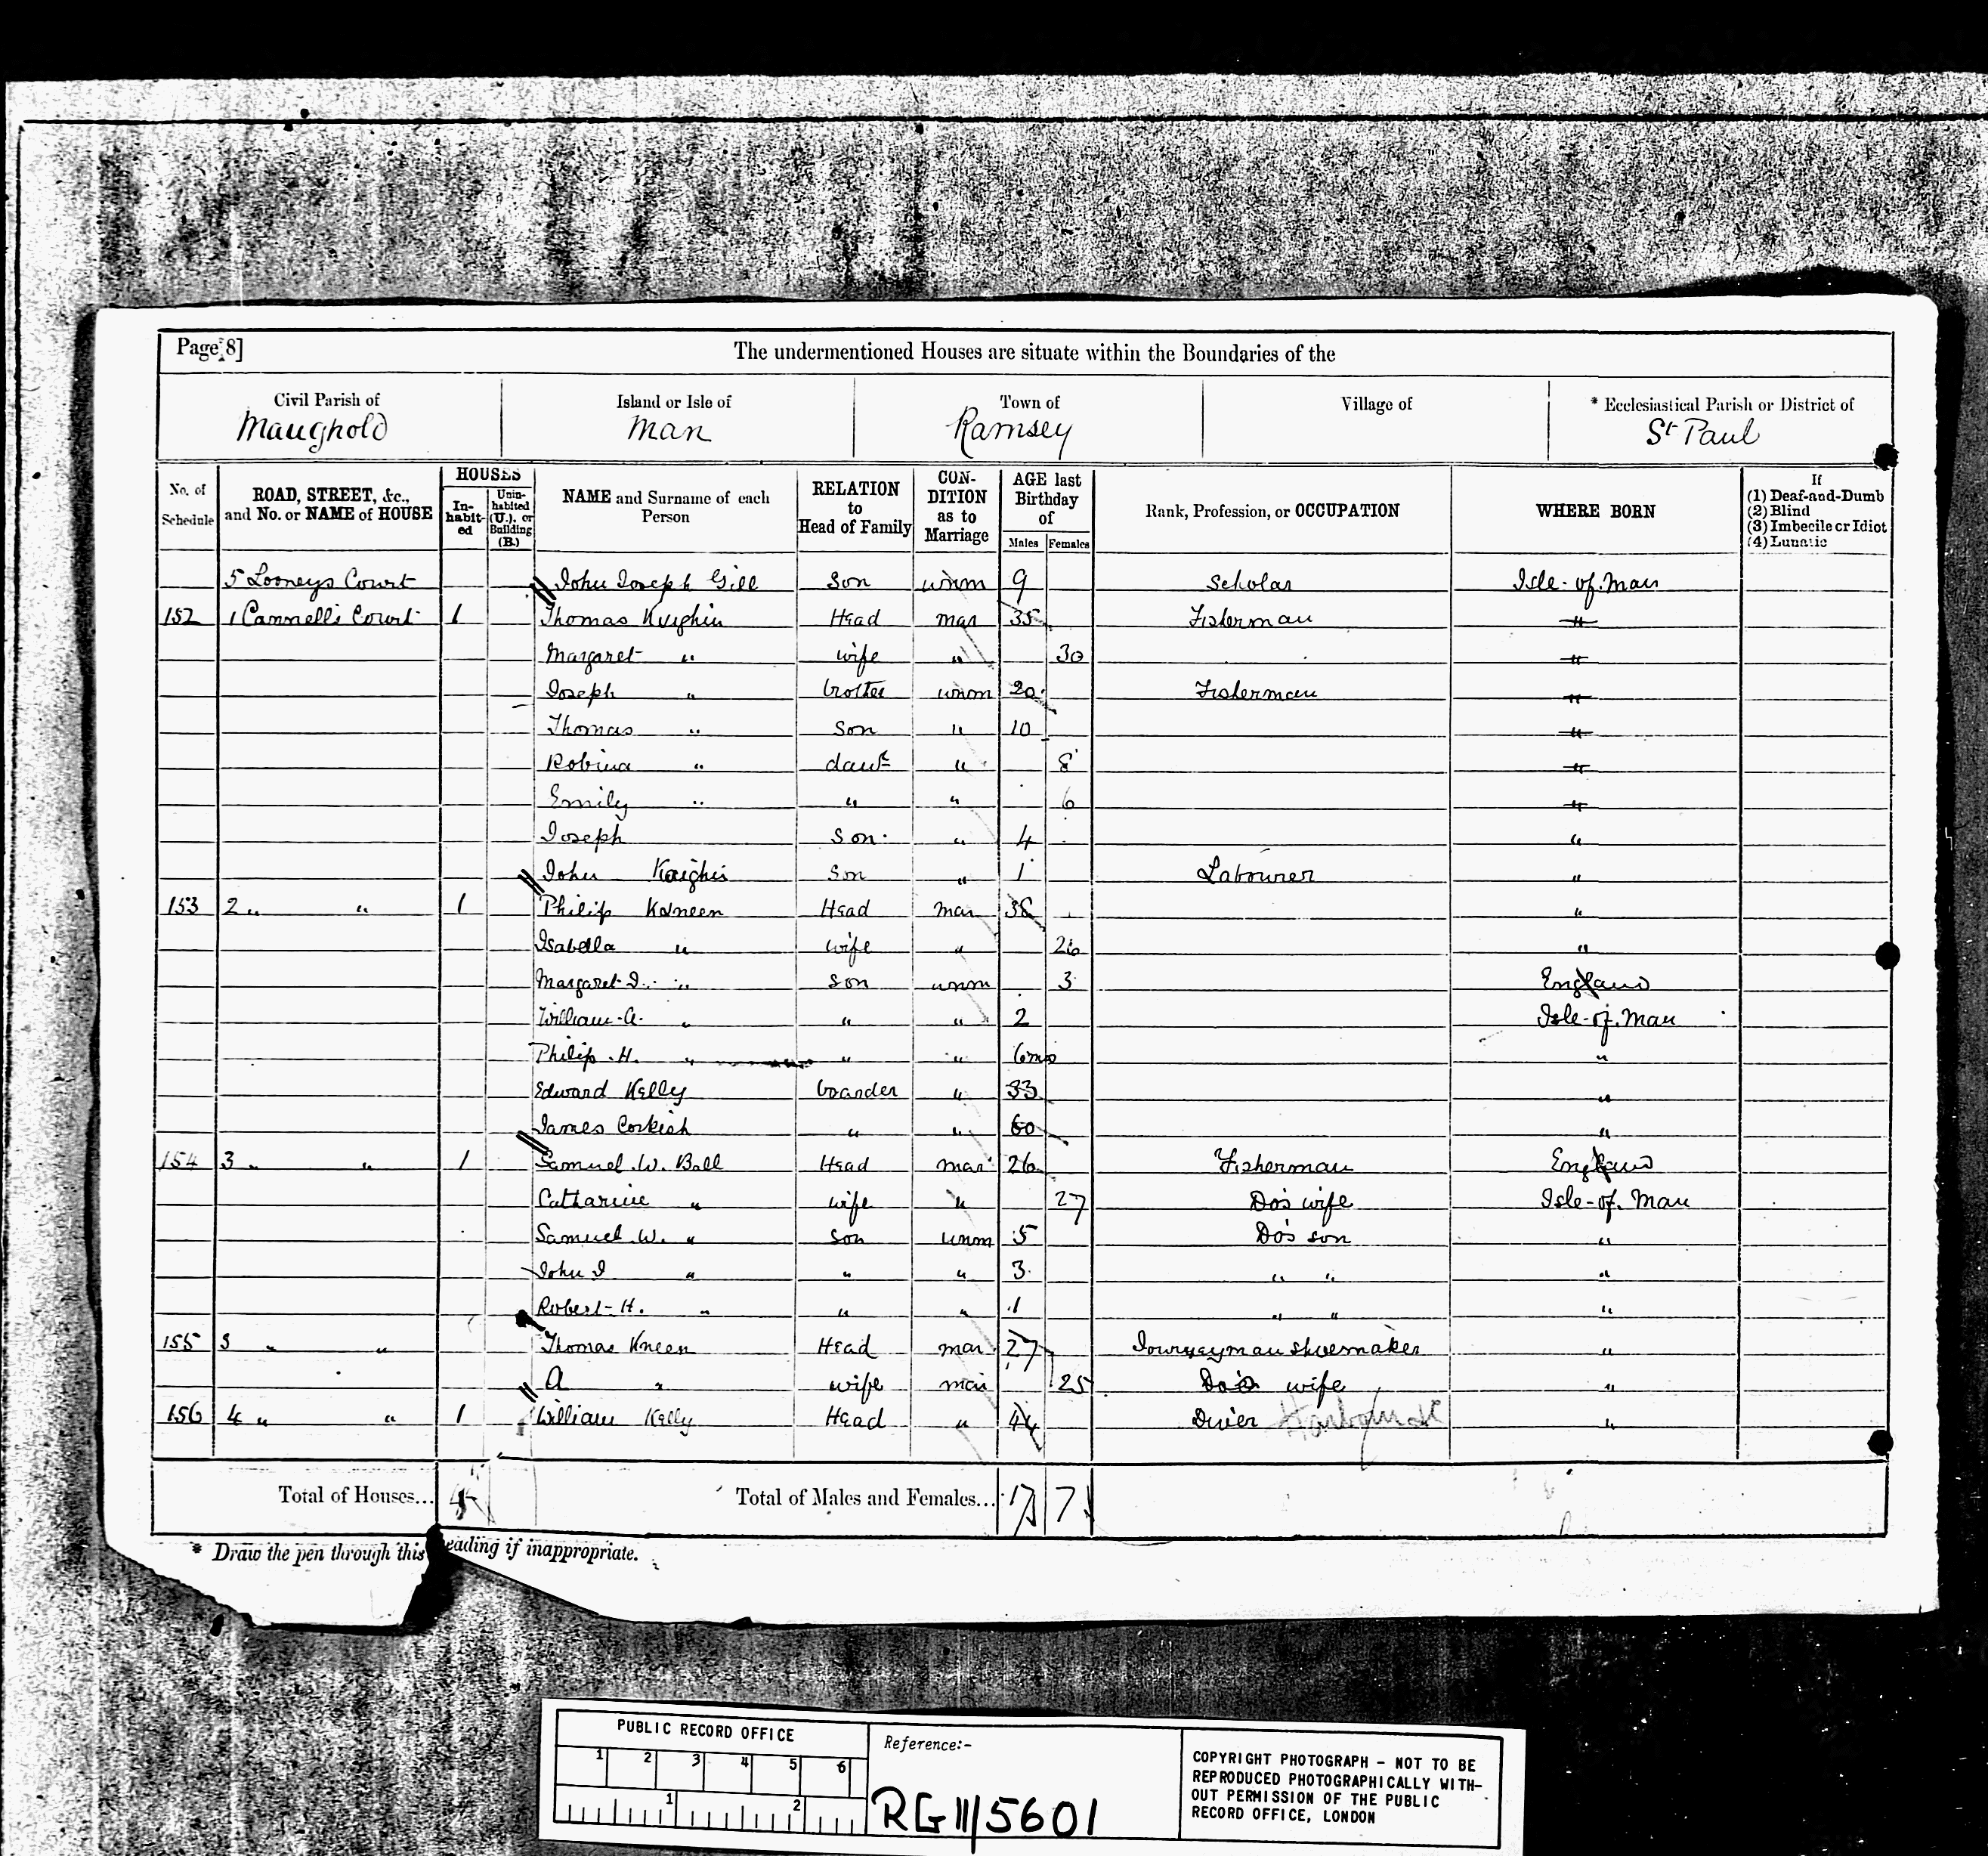 Page 8]
The undermentioned Houses are situate within the Boundaries of the
Civil Parish of Island or Isle of Town of Village of * Ecclesiastical Parish or District of
Maughold Man Ramsey St Paul
No. of Schedule ROAD, STREET, &c., and No. or NAME of HOUSE HOUSES In-habit-ed Unin-habited (U.), or Building (B.) NAME and Surname of each Person RELATION to Head of Family CON-DITION as to Marriage AGE last Birthday of Males Females Rank, Profession, or OCCUPATION WHERE BORN If (1) Deaf-and-Dumb (2) Blind (3) Imbecile or Idiot (4) Lunatic
5 Looneys Court John Joseph Gill Son unm 9 Scholar Isle-of-Man
152 1 Cannell's Court 1 Thomas Head mar 35 Fisherman "
Margaret " wife " 30 "
Joseph " brother unm 20 Fisherman "
Thomas " Son " 10 "
Robina " daur " 8 "
Emily " " " 6 "
Joseph Son " 4 "
John Kaighin Son " 1 Labourer "
153 2 " " 1 Philip Kaneen Head mar 38 "
Isabella " wife " 26 "
Margaret J. " son unm 3 England
William A. " " " 2 Isle-of-Man
Philip H. " " " 6mo "
Edward Kelly boarder " 33 "
James Corkish " " 60 "
154 3 " " 1 Samuel W. Ball Head mar 26 Fisherman England
Catharine " wife " 27 Do's wife Isle-of-Man
Samuel W. " son unm 5 Do's son "
John J " " " 3 " " "
Robert H. " " " 1 " " "
155 3 " " Thomas Kneen Head mar 27 Journeyman Shoemaker "
A " wife mar 25 Do's wife "
156 4 " " 1 William Kelly Head " 44 "
Total of Houses... 4 Total of Males and Females... 17 7
* Draw the pen through this heading if inappropriate.
PUBLIC RECORD OFFICE
1 2 3 4 5 6
1 2
Reference:-
RG 11/5601
COPYRIGHT PHOTOGRAPH - NOT TO BE
REPRODUCED PHOTOGRAPHICALLY WITH-
OUT PERMISSION OF THE PUBLIC
RECORD OFFICE, LONDON